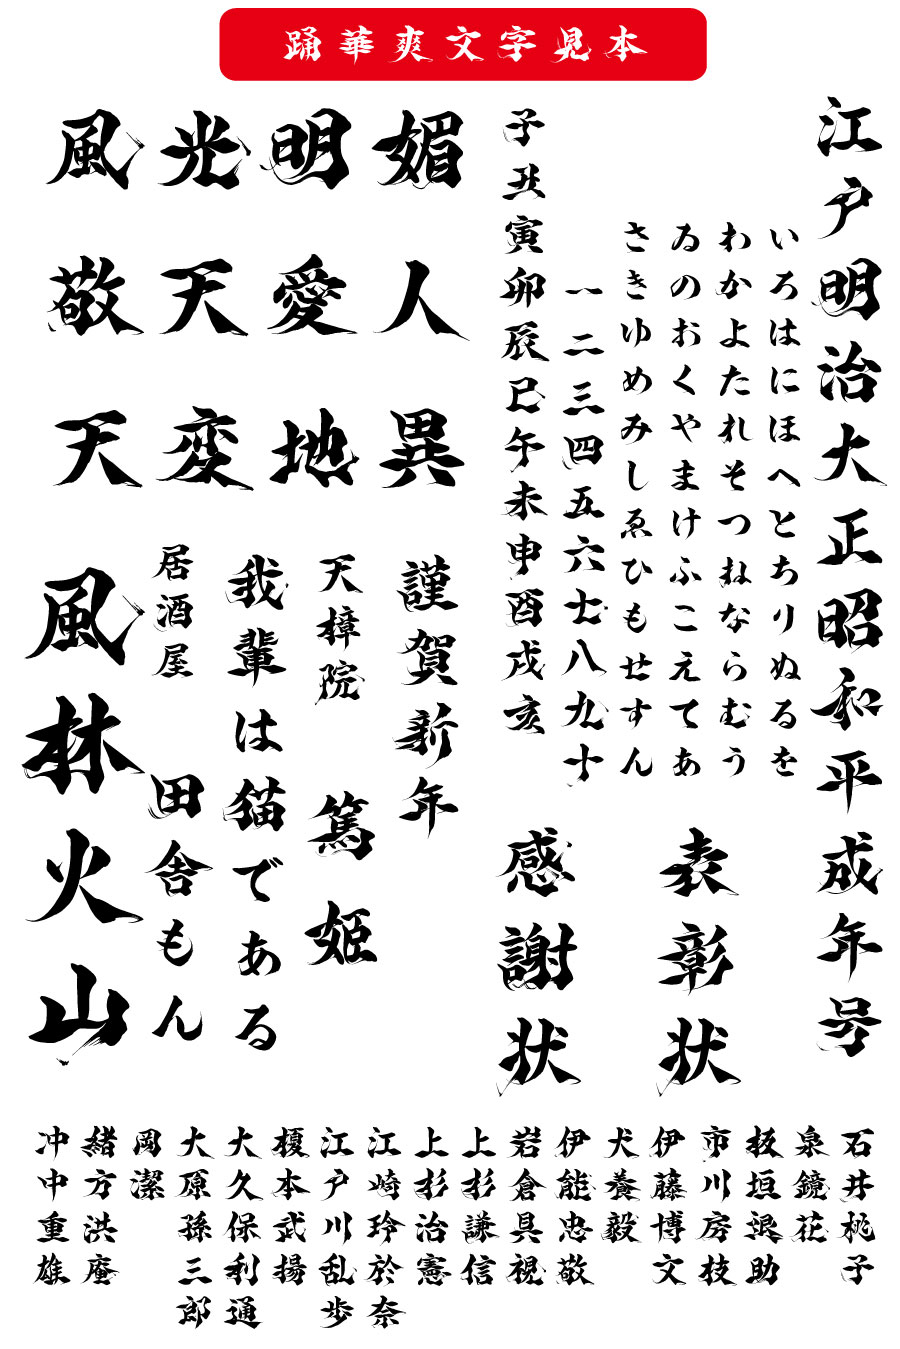 踊華爽文字見本
江戸明治大正昭和平成年号
いろはにほへとちりぬるを
わかよたれそつねならむう
ゐのおくやまけふこえてあ
さきゆめみしゑひもせすん
一二三四五六七八九十
子丑寅卯辰巳午未申酉戌亥
表彰状
感謝状
風光明媚
敬天愛人
天変地異
謹賀新年
天樟院
篤姫
我輩は猫である
居酒屋
田舎もん
風林火山
石井桃子
泉鏡花
板垣退助
市川房枝
伊藤博文
犬養毅
伊能忠敬
岩倉具視
上杉謙信
上杉治憲
江崎玲於奈
江戸川乱歩
榎本武揚
大久保利通
大原孫三郎
岡潔
緒方洪庵
沖中重雄